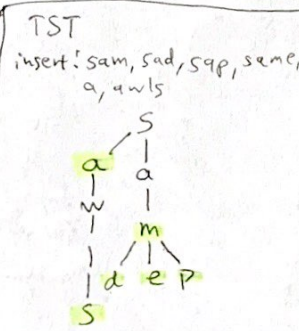 TST
insert: sam, sad, sap, same,
a, awls
S
a a
w
l m
d e p
S